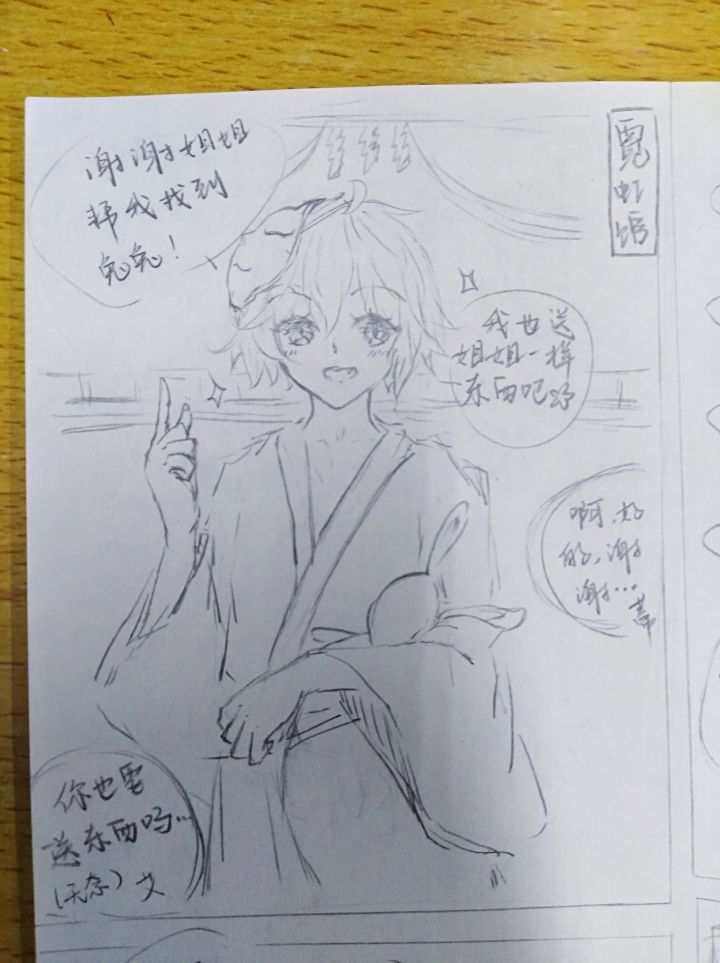 谢谢姐姐
帮我找到
兔兔！
霓虹馆
我也送
姐姐一样
东西吧
啊,好
的,谢
谢…
你也要
送东西吗…
文